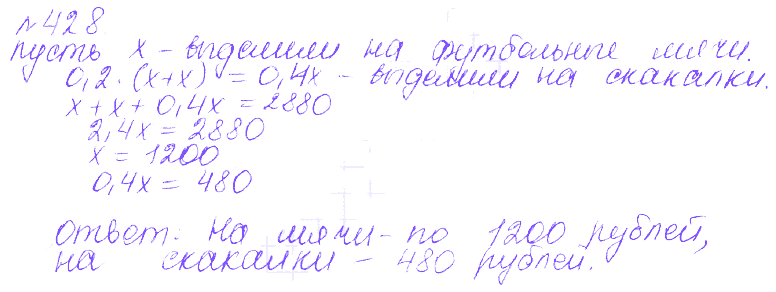 №428
пусть x - выделили на футбольные мячи.
0,2·(x+x) = 0,4x - выделили на скакалки.
x+x+0,4x = 2880
2,4x = 2880
x = 1200
0,4x = 480
Ответ: На мячи - по 1200 рублей,
на скакалки - 480 рублей.